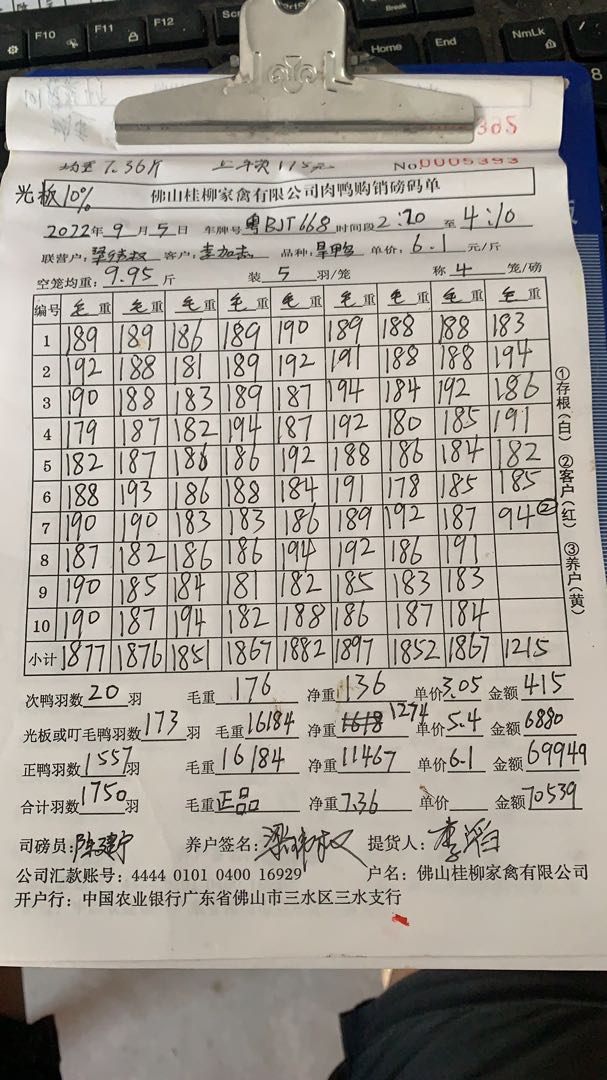 F10 F11 F12 Scre Break
Home End NmLk
8
365
均重7.36斤 上车次175元 No 0005393
光板10% 佛山桂柳家禽有限公司肉鸭购销磅码单
2022年9月5日 车牌号粤BJT668 时间段2:20至4:10
联营户: 客户: 品种: 单价:6.1元/斤
空笼均重:9.95斤 装5羽/笼 称4笼/磅
编号 毛重 毛重 毛重 毛重 毛重 毛重 毛重 毛重 毛重
1 189 189 186 189 190 189 188 188 183
2 192 188 181 189 192 191 188 188 194
3 190 188 183 189 187 194 184 192 186
4 179 187 182 194 187 192 180 185 191
5 182 187 186 186 192 188 186 184 182
6 188 193 186 188 184 191 178 185 185
7 190 190 183 183 186 189 192 187 94②
8 187 182 186 186 194 192 186 191
9 190 185 184 181 182 185 183 183
10 190 187 194 182 188 186 187 184
小计 1877 1876 1851 1867 1882 1897 1852 1867 1215
①存根(白) ②客户(红) ③养户(黄)
次鸭羽数20羽 毛重176 净重136 单价3.05 金额415
光板或叮毛鸭羽数173羽 毛重16184 净重1618 1274 单价5.4 金额6880
正鸭羽数1557羽 毛重16184 净重11467 单价6.1 金额69949
合计羽数1750羽 毛重正品 净重7.36 单价 金额70539
司磅员: 养户签名: 提货人:李滔
公司汇款账号: 4444 0101 0400 16929 户名: 佛山桂柳家禽有限公司
开户行: 中国农业银行广东省佛山市三水区三水支行